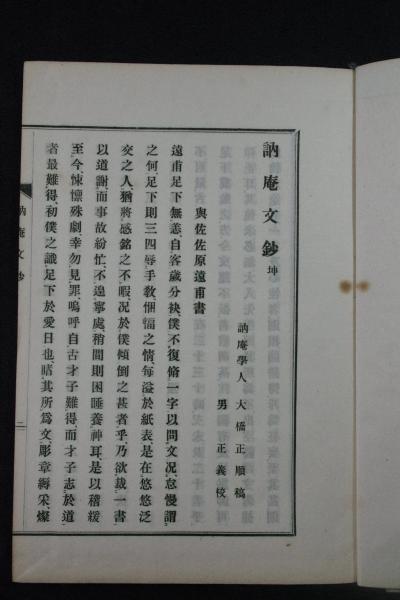 訥庵文鈔 坤
訥庵學人 大橋正順稿
男 正義校
與佐佐原遠甫書
遠甫足下無恙自客歲分袂僕不復脩一字以問文況怠慢謂
之何足下則三四辱手敎悃愊之情每溢於紙表是在悠悠泛
交之人猶將感銘之不暇況於僕傾倒之甚者乎乃欲裁一書
以道謝而事故紛忙不遑寧處稍間則困睡養神耳是以稽緩
至今悚懷殊劇幸勿見罪嗚呼自古才子難得而才子志於道
者最難得初僕之識足下於愛日也睹其所爲文彫章縟采燦
訥庵文鈔